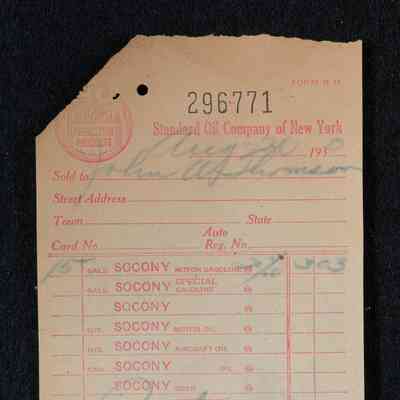 FORM
296771
Standard Oil Company of New York
Aug 193
Sold to John A Thomson
Street Address
Town State
Auto
Card No. Reg. No.
15 GALS. SOCONY MOTOR GASOLINE @
GALS. SOCONY SPECIAL GASOLINE @
SOCONY
QTS. SOCONY MOTOR OIL @
QTS. SOCONY AIRCRAFT OIL @
SOCONY OIL @
SOCONY @